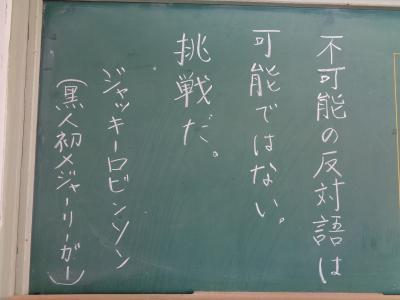 不可能の反対語は
可能ではない。
挑戦だ。
ジャッキーロビンソン
(黒人初メジャーリーガー)